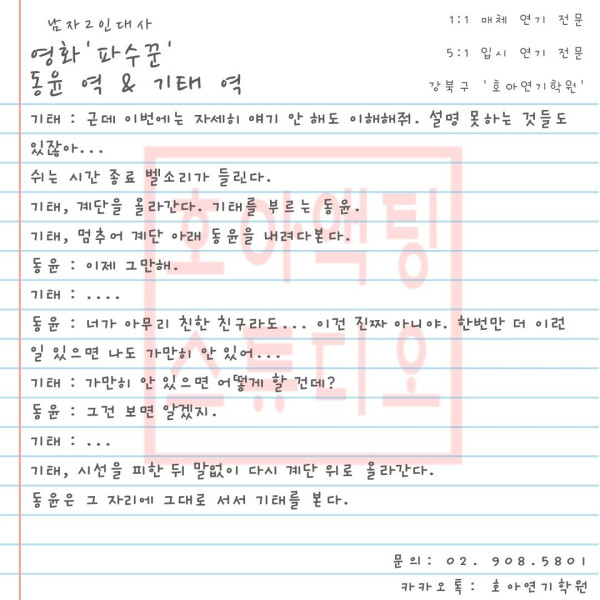 남자2인대사
1:1 매체 연기 전문
영화'파수꾼'
5:1 입시 연기 전문
동윤 역 & 기태 역
강북구 '호아연기학원'
기태 : 근데 이번에는 자세히 얘기 안 해도 이해해줘. 설명 못하는 것들도
있잖아...
쉬는 시간 종료 벨소리가 들린다.
기태, 계단을 올라간다. 기태를 부르는 동윤.
기태, 멈추어 계단 아래 동윤을 내려다본다.
동윤 : 이제 그만해.
기태 : ....
동윤 : 너가 아무리 친한 친구라도... 이건 진짜 아니야. 한번만 더 이런
일 있으면 나도 가만히 안 있어...
기태 : 가만히 안 있으면 어떻게 할 건데?
동윤 : 그건 보면 알겠지.
기태 : ...
기태, 시선을 피한 뒤 말없이 다시 계단 위로 올라간다.
동윤은 그 자리에 그대로 서서 기태를 본다.
호아액팅
스튜디오
문의: 02. 908.5801
카카오톡: 호아연기학원